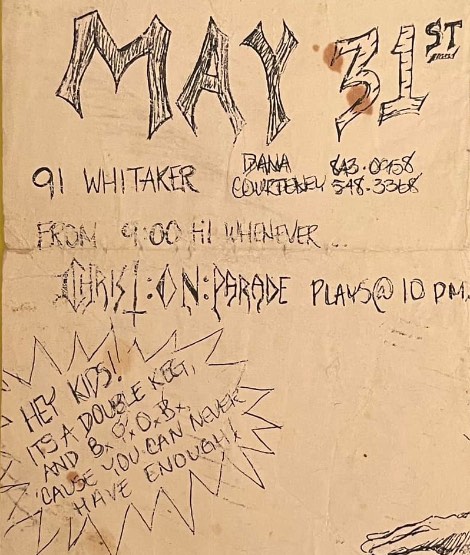 MAY 31ST
91 WHITAKER DANA 843.0958
COURTENEY 548.3368
FROM 9:00 til WHENEVER...
CHRIST:ON:PARADE PLAYS@10 PM.
HEY KIDS!!
ITS A DOUBLE KEG,
AND B.Y.O.B.
'CAUSE YOU CAN NEVER
HAVE ENOUGH!